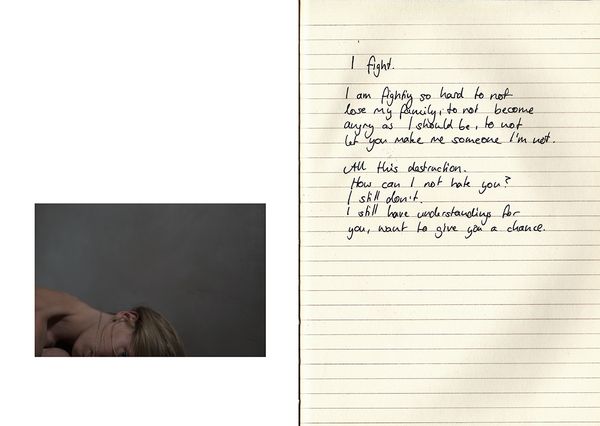 I fight.
I am fighting so hard to not
lose my family, to not become
angry as I should be, to not
let you make me someone I'm not.
All this destruction.
How can I not hate you?
I still don't.
I still have understanding for
you, want to give you a chance.